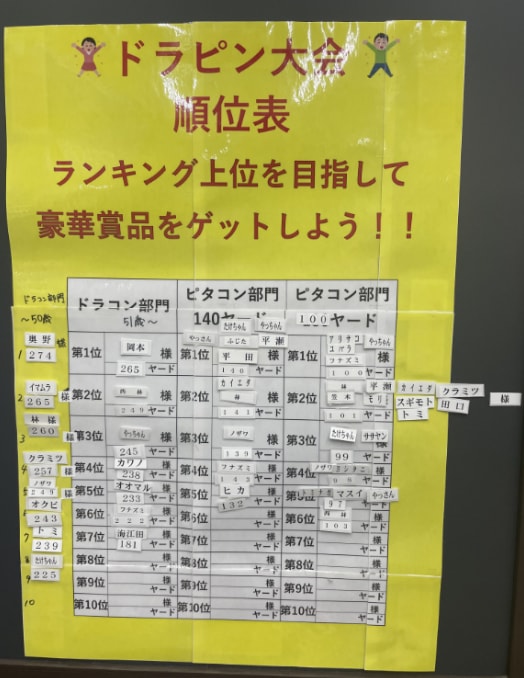 ドラピン大会
順位表
ランキング上位を目指して
豪華賞品をゲットしよう！！
ドラコン部門
～50歳
1 奥野 様
274
2 イマムラ 様
265
3 林 様
260 様
4 クラミツ 様
257
5 ノザワ 様
249
6 オクビ
243
7 トミ
239
8 たけちゃん
225
9
10
ドラコン部門
51歳～
第1位 岡本 様
265 ヤード
第2位 様
249 ヤード
第3位 やっちゃん 様
245 ヤード
第4位 カワノ 様
238 ヤード
第5位 オオマル 様
233 ヤード
第6位 フナズミ 様
222 ヤード
第7位 海江田 様
181 ヤード
第8位 様
ヤード
第9位 様
ヤード
第10位 様
ヤード
ピタコン部門
140ヤード
たけちゃん やっちゃん
やっさん ふじた 平瀬
第1位 平田 様
140 ヤード
カイエダ
第2位 様
141 ヤード
第3位 ノザワ 様
139 ヤード
第4位 フナズミ 様
143 ヤード
第5位 ヒカ 様
132 ヤード
第6位 様
ヤード
第7位 様
ヤード
第8位 様
ヤード
第9位 様
ヤード
第10位 様
ヤード
ピタコン部門
100ヤード
やっちゃん
第1位 フナズミ 様
100 ヤード
平瀬 カイエダ クラミツ
第2位 笠本 モリミ スギモト 田口 様
101 ヤード トミ
第3位 たけちゃん ササヤン
99 ヤード
第4位 ノザワ 様
98 ヤード
マスイ やっさん
97 ヤード
第6位 様
103 ヤード
第7位 様
ヤード
第8位 様
ヤード
第9位 様
ヤード
第10位 様
ヤード